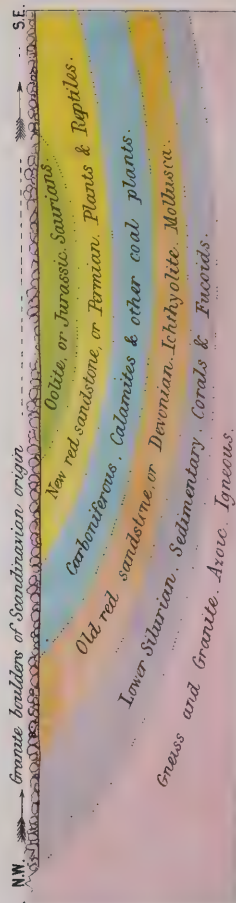 N.W.
Granite boulders of Scandinavian origin
S.E.
Oolite, or Jurassic. Saurians
New red sandstone, or Permian. Plants & Reptiles.
Carboniferous. Calamites & other coal plants.
Old red sandstone, or Devonian. Ichthyolite. Mollusca.
Lower Silurian. Sedimentary Corals & Fucoids
Gneiss and Granite. Azoic. Igneous.